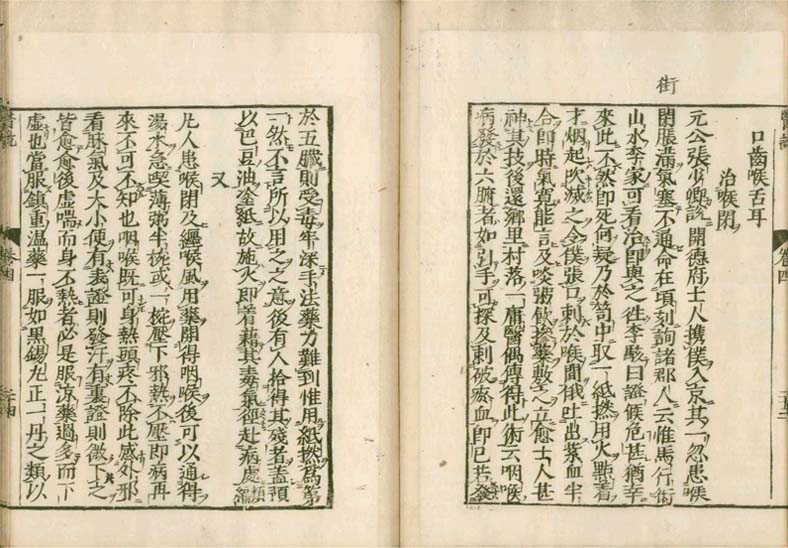 街
醫説
卷四
二十三
口齒喉舌耳
治喉閉
元公張少卿説開德府士人携僕入京其一忽患喉
閉脹滿氣塞不通命在頃刻詢諸郡人云惟馬行街
山水李家可看治即與之徃李駭曰證候危甚猶幸
來此不然即死何疑乃於笥中取一紙撚用火點着
才烟起吹滅之令僕張口刺於喉間俄吐出紫血半
合即時氣寛能言及啖粥飲摻藥敷之立愈士人甚
神其技後還鄉里村落一庸醫偶傳得此術云咽喉
病發於六腑者如引手可探及刺破瘀血即已若發
於五臟則受毒牢深手法藥力難到惟用紙撚爲第
一然不言所以用之之意後有人拾得其殘者盖預
以巴豆油塗紙故施火即着藉其毒氣徑赴病處類編
又
凡人患喉閉及纏喉風用藥開得咽喉後可以通得
湯水急喫薄粥半椀或一椀壓下邪熱不壓即病再
來不可不知也咽喉既可身熱頭疼不除此感外邪
看脉氣及大小便有表證則發汗有裏證則微下之
皆愈愈後虛喘而身不熱者必是服涼藥過多而下
虛也當服鎮重温藥一服如黑錫丸正一丹之類以
醫説
卷四
二十四